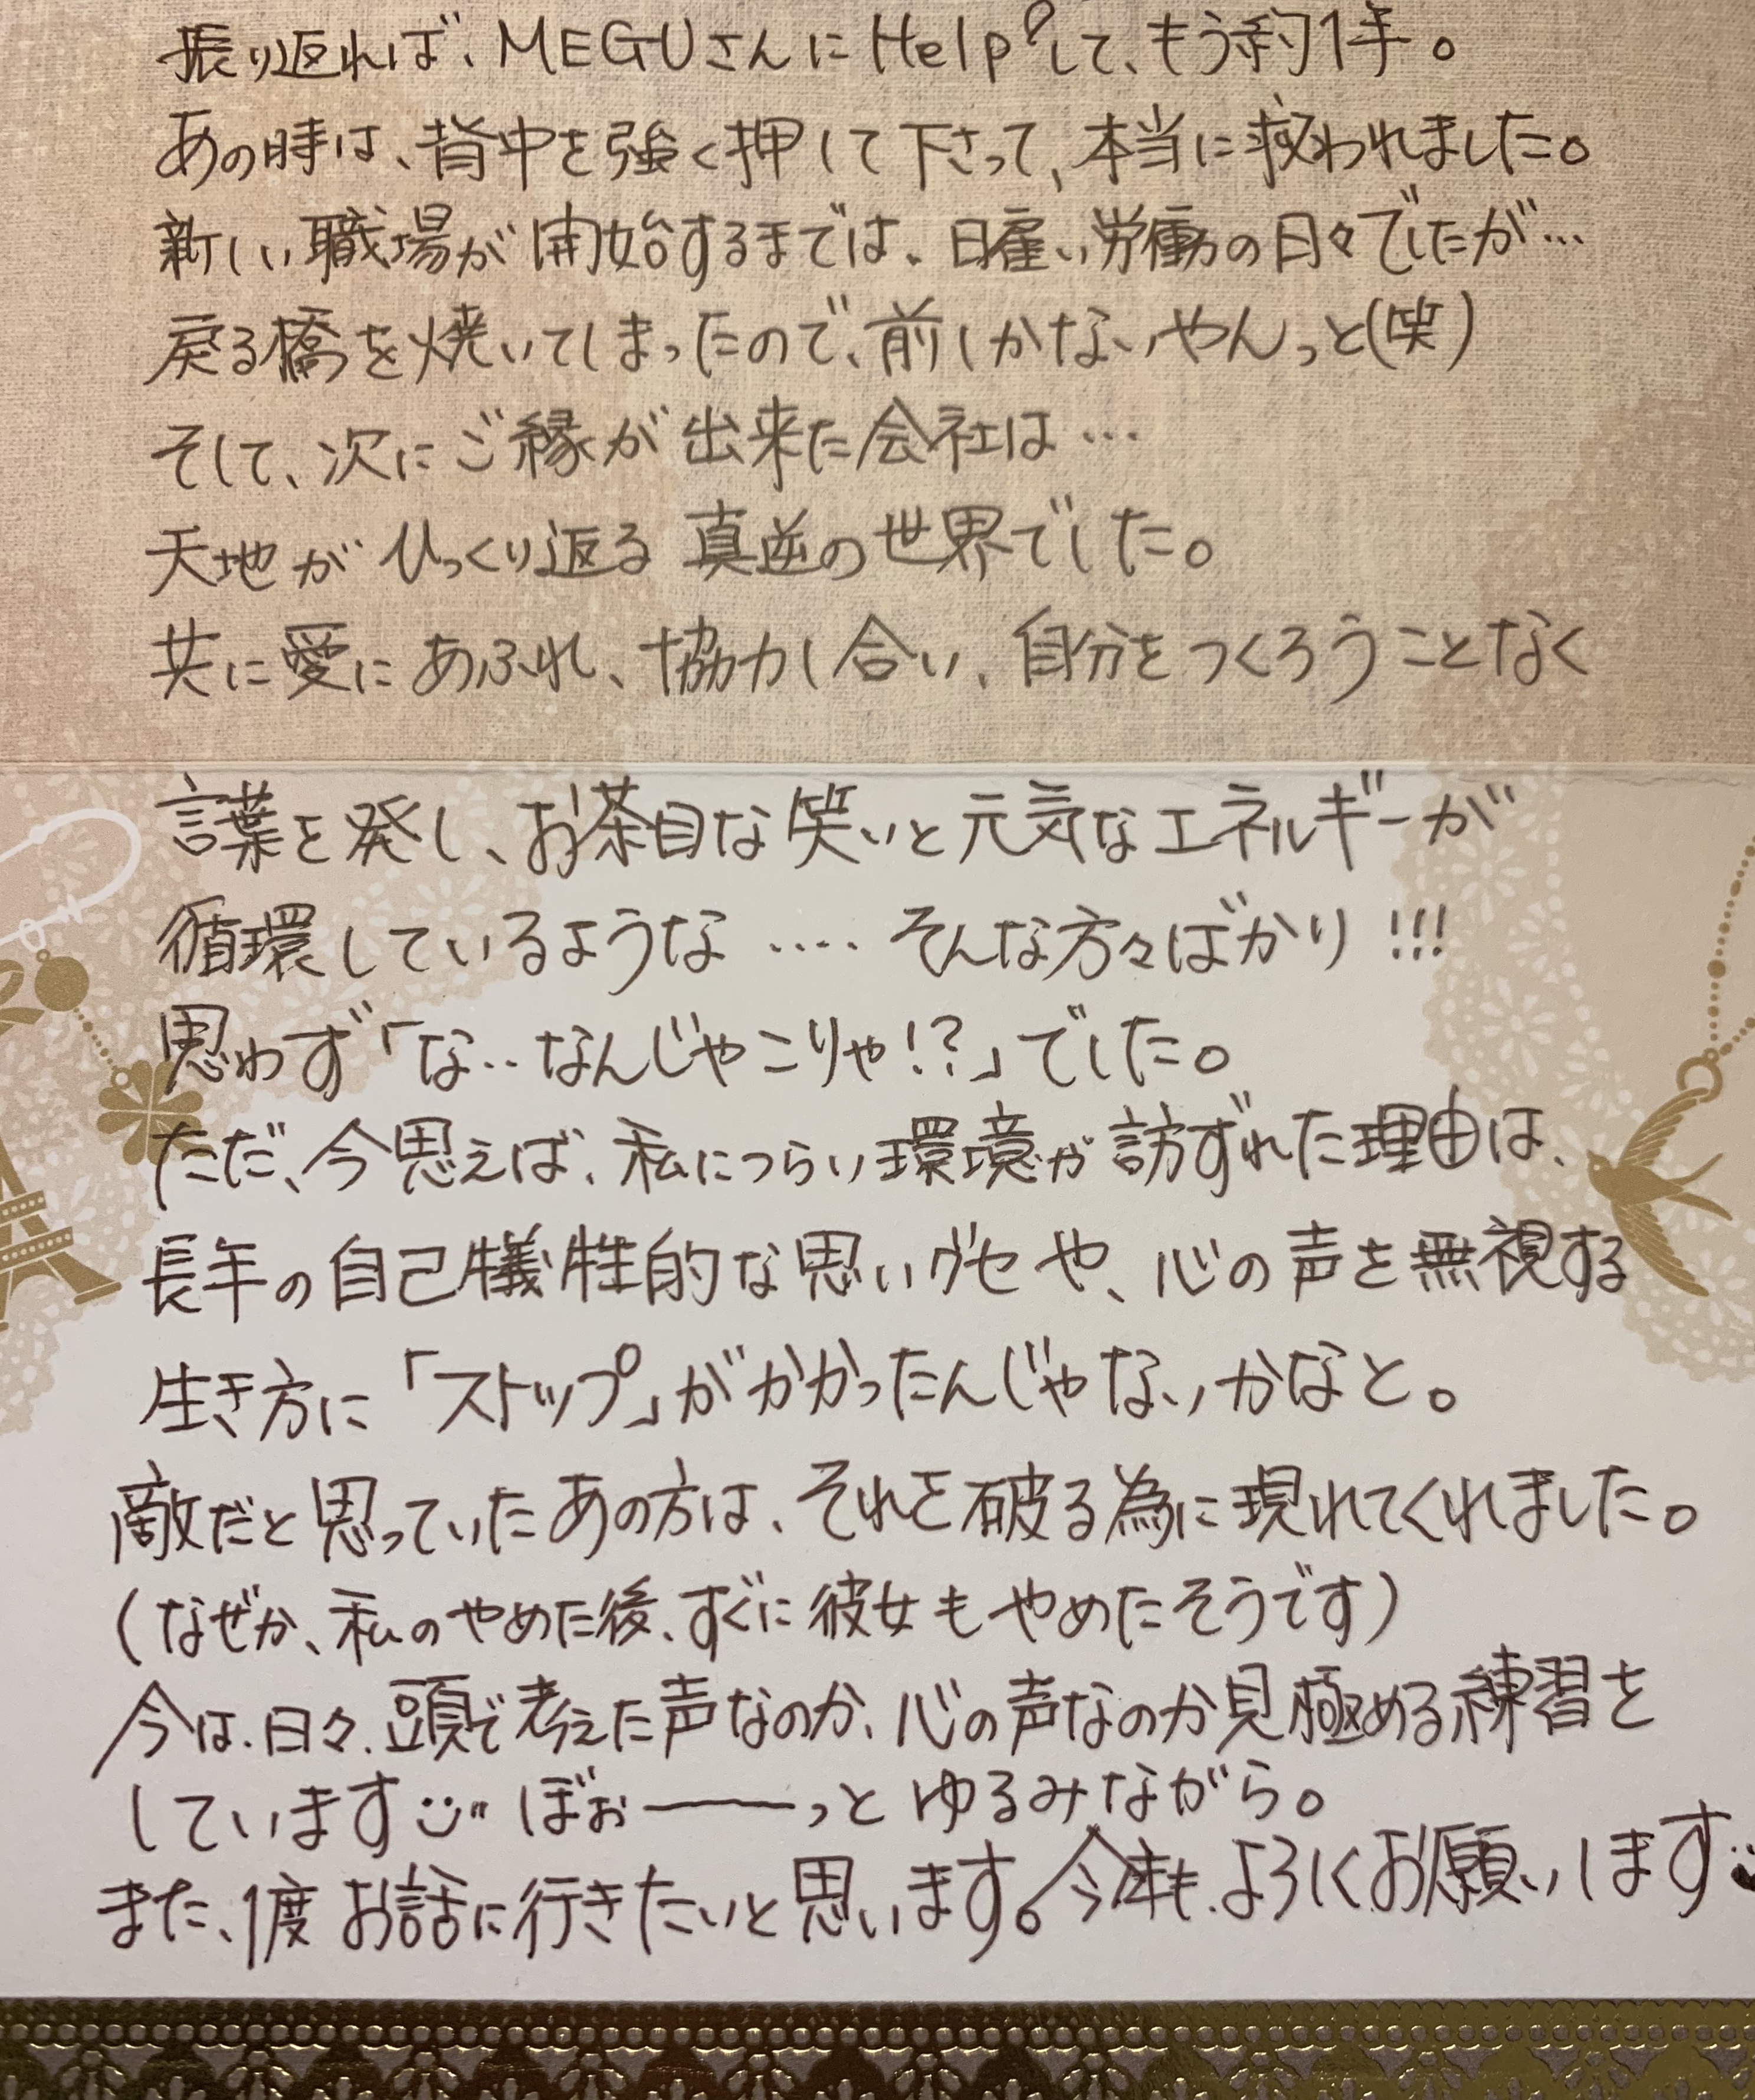 振り返れば、MEGUさんにHelpして、もう約1年。
あの時は、背中を強く押して下さって、本当に救われました。
新しい職場が開始するまでは、日雇い労働の日々でしたが…
戻る橋を焼いてしまったので、前しかないやんっと(笑)
そして、次にご縁が出来た会社は…
天地がひっくり返る真逆の世界でした。
共に愛にあふれ、協力し合い、自分をつくろうことなく
言葉を発し、お茶目な笑いと元気なエネルギーが
循環しているような ‥‥ そんな方々ばかり!!!
思わず「な‥なんじゃこりゃ!?」でした。
ただ、今思えば、私につらい環境が訪ずれた理由は、
長年の自己犠牲的な思いグセや、心の声を無視する
生き方に「ストップ」がかかったんじゃないかなと。
敵だと思っていたあの方は、それを破る為に現れてくれました。
(なぜか、私のやめた後、すぐに彼女もやめたそうです)
今は、日々、頭で考えた声なのか、心の声なのか見極める練習を
しています ぼぉーーーっとゆるみながら。
また、1度お話に行きたいと思います。今年も、よろしくお願いします